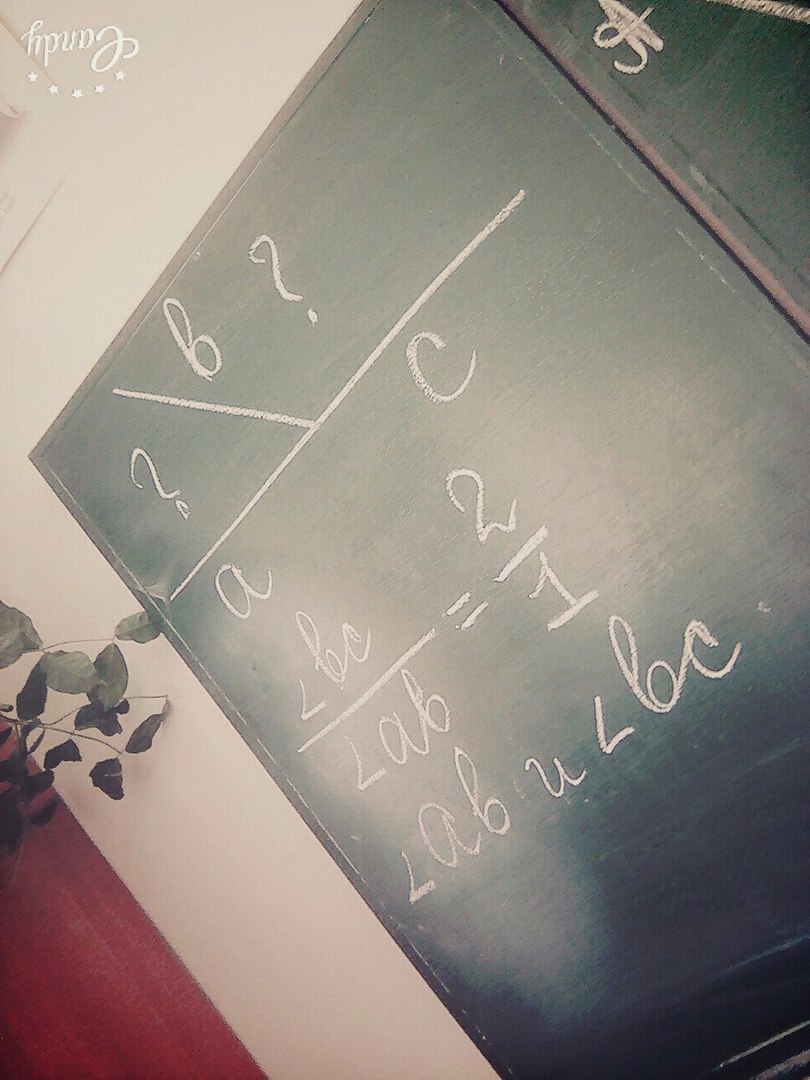 Candy
b ?
?
a c
∠bc / ∠ab = 2 / 1
∠ab и ∠bc.